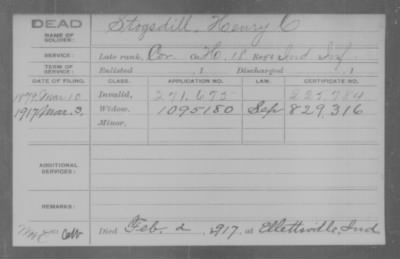 DEAD
NAME OF SOLDIER:
Stogsdill, Henry C
SERVICE:
Late rank, Cor. Co. H, 18 Reg't Ind Inf
TERM OF SERVICE:
Enlisted 1 Discharged 1
DATE OF FILING. CLASS. APPLICATION NO. LAW. CERTIFICATE NO.
1879. Mar. 10 Invalid, 271,675 225,784
1917. Mar. 3. Widow, 1095180 Sep 829,316
Minor,
ADDITIONAL SERVICES:
REMARKS:
Died Feb. 2, 1917, at Ellettsville, Ind